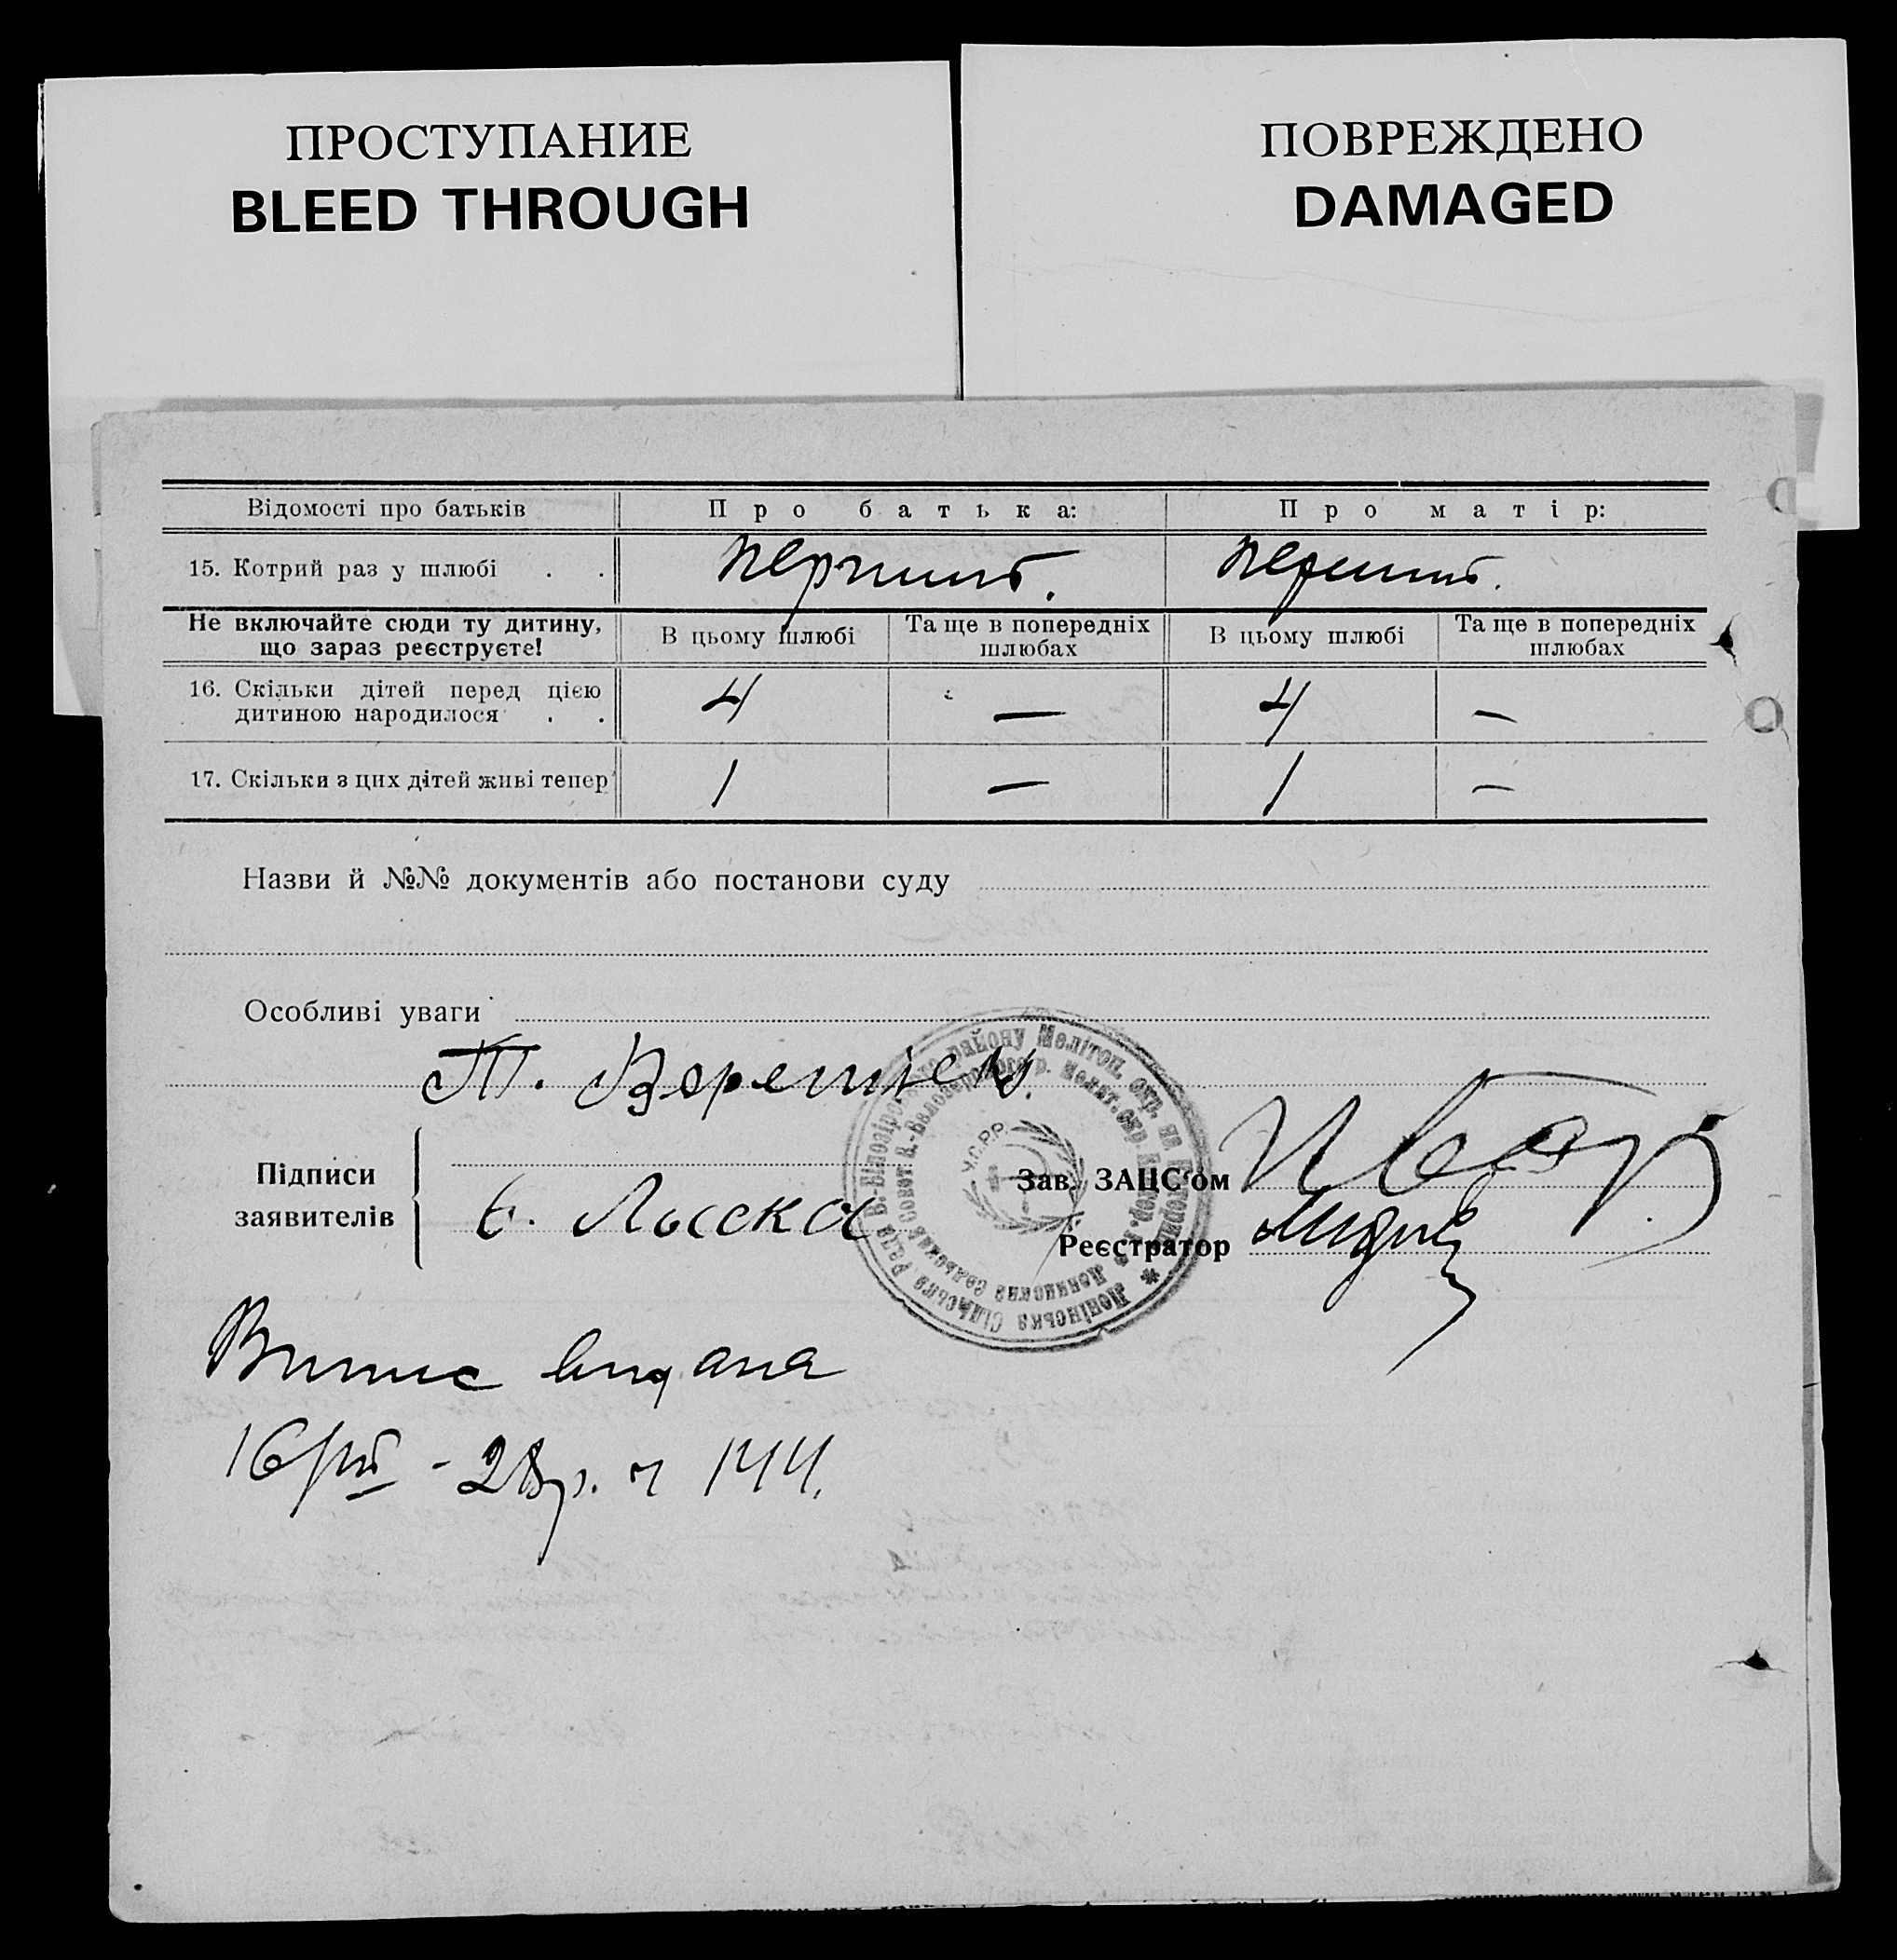 ПРОСТУПАНИЕ
BLEED THROUGH
ПОВРЕЖДЕНО
DAMAGED
Відомості про батьків
Про батька:
Про матір:
15. Котрий раз у шлюбі . .
перший.
перший.
Не включайте сюди ту дитину,
що зараз реєструєте!
В цьому шлюбі
Та ще в попередніх
шлюбах
В цьому шлюбі
Та ще в попередніх
шлюбах
16. Скільки дітей перед цією
дитиною народилося . .
4
—
4
—
17. Скільки з цих дітей живі тепер
1
—
1
—
Назви й №№ документів або постанови суду
Особливі уваги
Т.
Підписи
заявителів
Є. Лысска
Ленінська Сільська Рада В.-Білозірського району Мелітоп. окр. на
Ленинский сельский Совет В.-Белозерского р. Мелит. окр.
У.С.Р.Р.
Зав. ЗАЦС'ом
Реєстратор
Випис видана
16/VII - 28р. ч 144.